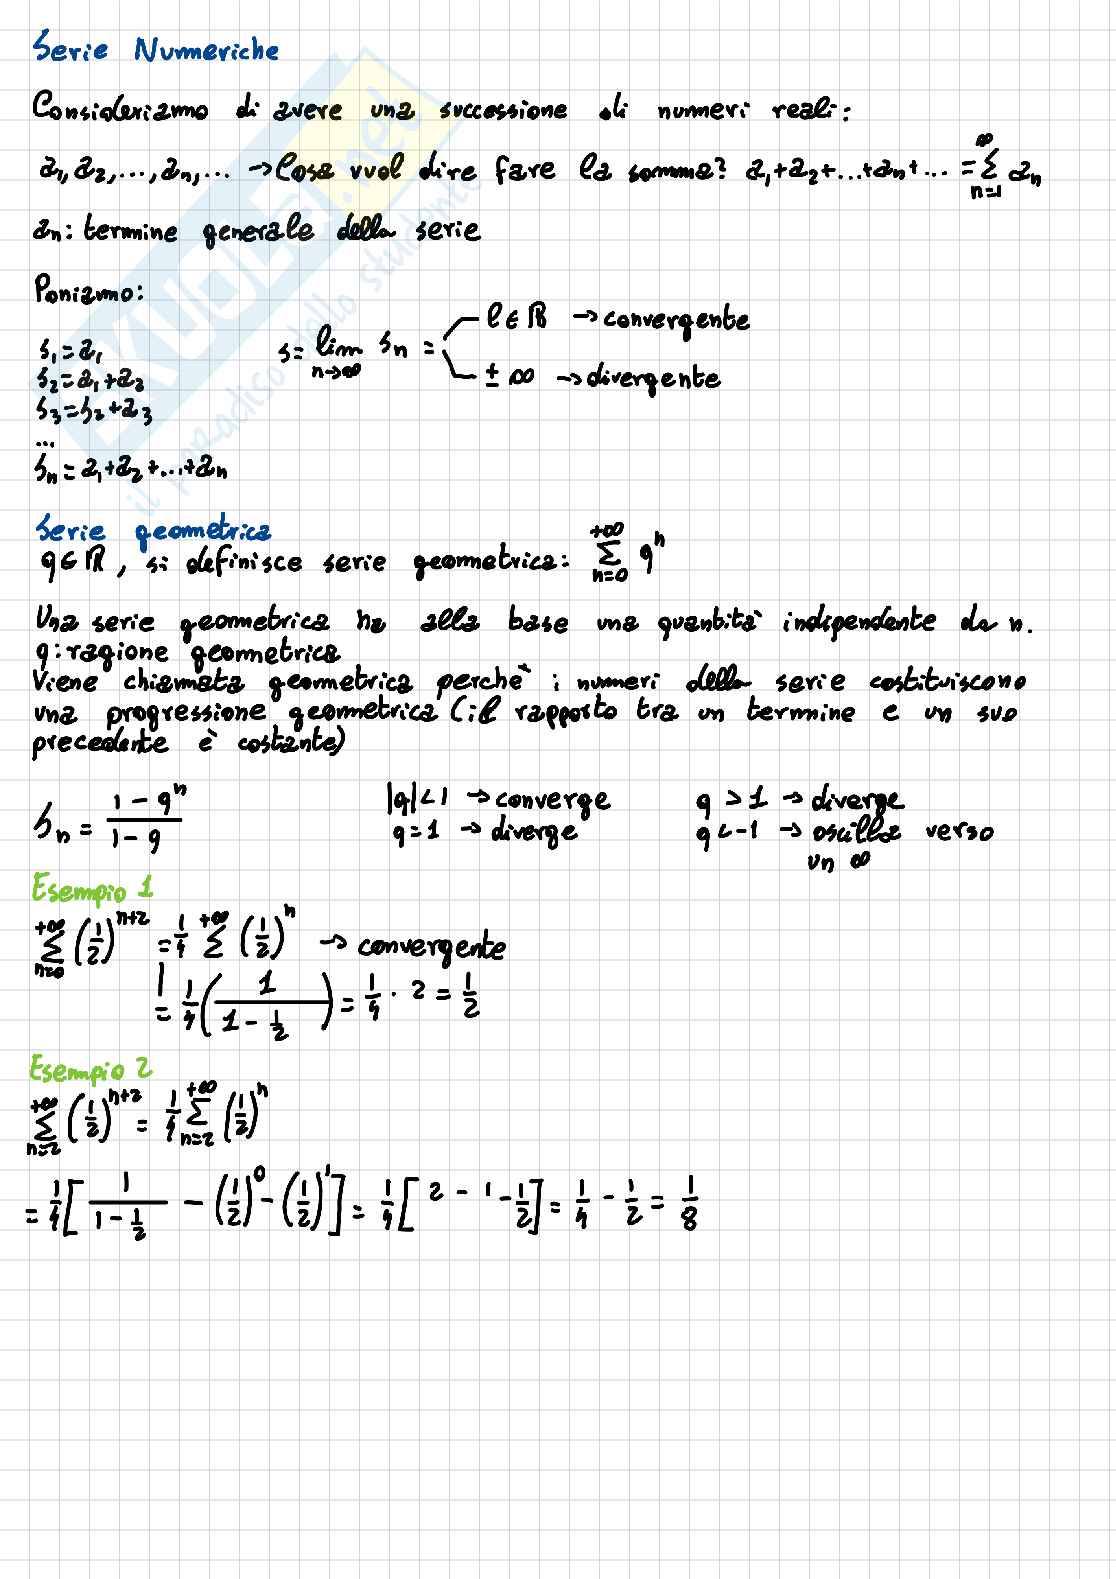 Serie Numeriche
Consideriamo di avere una successione di numeri reali:
a₁, a₂, ..., aₙ, ... → Cosa vuol dire fare la somma? a₁+a₂+...+aₙ+... = ∑_{n=1}^{∞} aₙ
aₙ: termine generale della serie
Poniamo:
s₁=a₁
s₂=a₁+a₂
s₃=s₂+a₃
...
sₙ=a₁+a₂+...+aₙ
s= lim_{n→∞} sₙ =
l∈ℝ → convergente
±∞ → divergente
Serie geometrica
q∈ℝ, si definisce serie geometrica: ∑_{n=0}^{+∞} qⁿ
Una serie geometrica ha alla base una quantità indipendente da n.
q: ragione geometrica
Viene chiamata geometrica perchè i numeri della serie costituiscono
una progressione geometrica (il rapporto tra un termine e un suo
precedente è costante)
sₙ = (1-qⁿ)/(1-q)
|q|<1 → converge
q=1 → diverge
q>1 → diverge
q<-1 → oscilla verso
un ∞
Esempio 1
∑_{n=0}^{+∞} (1/2)^{n+2} = 1/4 ∑^{+∞} (1/2)ⁿ → convergente
= 1/4 (1/(1-1/2)) = 1/4 · 2 = 1/2
Esempio 2
∑_{n=2}^{+∞} (1/2)^{n+2} = 1/4 ∑_{n=2}^{+∞} (1/2)ⁿ
= 1/4 [1/(1-1/2) - (1/2)⁰ - (1/2)¹] = 1/4 [2-1-1/2] = 1/4 - 1/2 = 1/8
SKUOLA.net
il paradiso dello studente